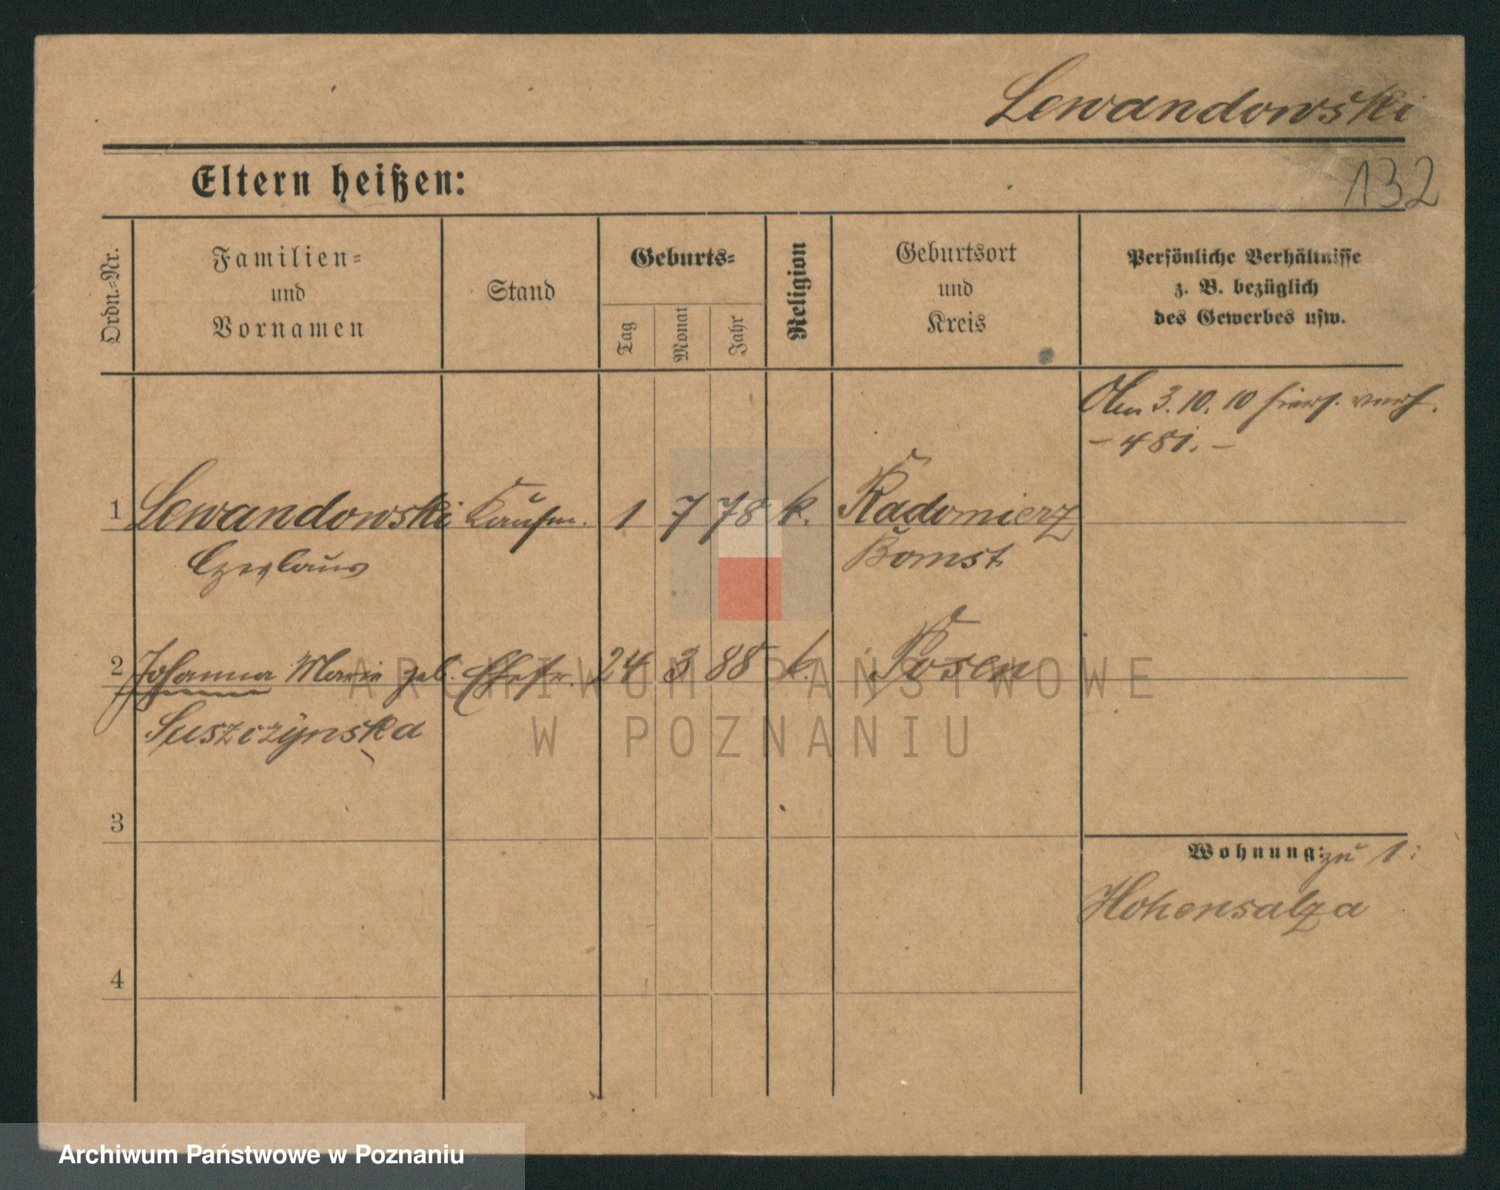 Lewandowski
132
Eltern heißen:
Ordn.-Nr.
Familien-
und
Vornamen
Stand
Geburts-
Tag
Monat
Jahr
Religion
Geburtsort
und
Kreis
Persönliche Verhältnisse
z. B. bezüglich
des Gewerbes usw.
3. 10. 10
- 481. -
1 Lewandowski Kaufm. 1 7 78 k. Radomierz
Czeslaus Bomst
2 Johanna Marie geb. Ehefr. 24 3 88 k. Posen
Suszczynska
3
Wohnung: zu 1:
Hohensalza
4
ARCHIWUM PAŃSTWOWE
W POZNANIU
Archiwum Państwowe w Poznaniu